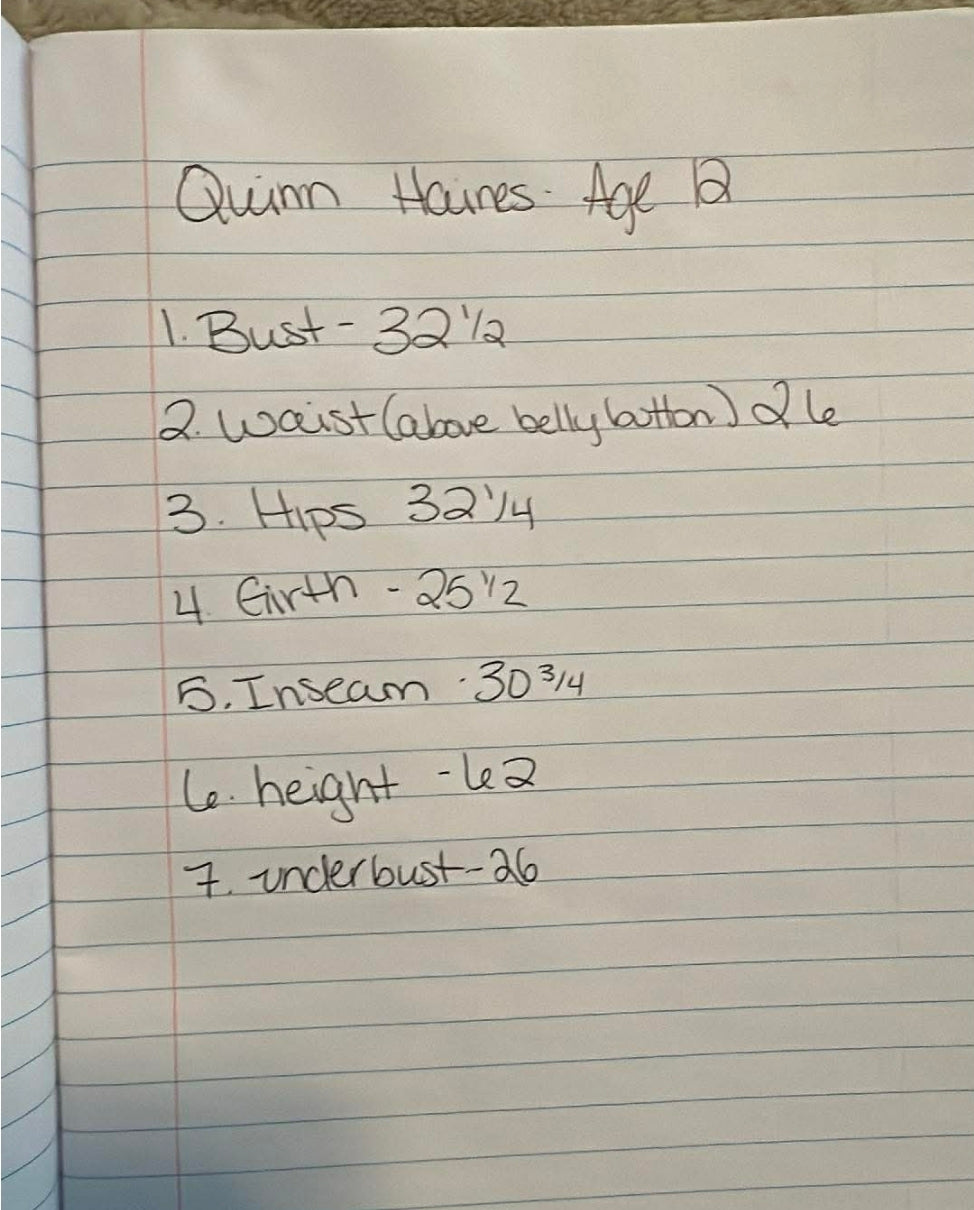 Quinn Haines - Age 12
1. Bust - 32 1/2
2. waist (above belly button) 26
3. Hips 32 1/4
4. Girth - 25 1/2
5. Inseam - 30 3/4
6. height - 62
7. underbust - 26